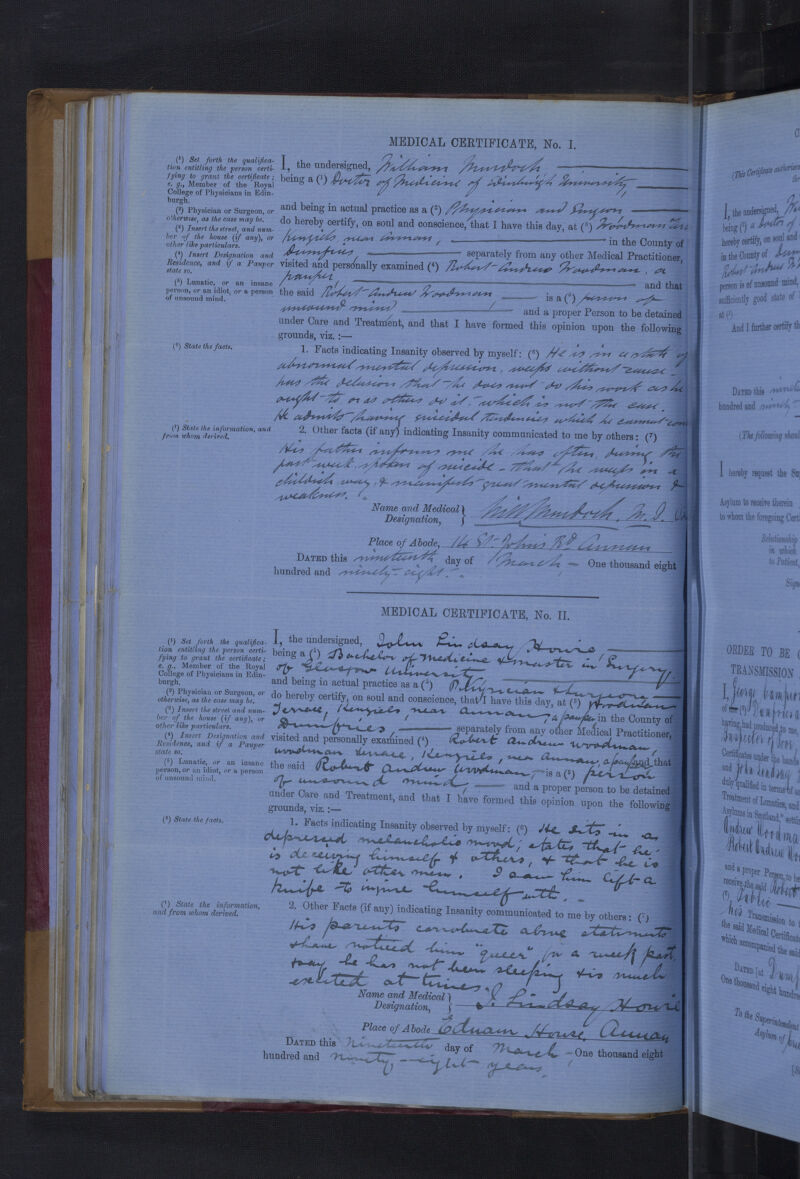 MEDICAL CERTIFICATE, No. I.
(¹) Set forth the qualifica-
tion entitling the person certi-
fying to grant the certificate;
e. g., Member of the Royal
College of Physicians in Edin-
burgh.
(²) Physician or Surgeon, or
otherwise, as the case may be.
(³) Insert the street, and num-
ber of the house (if any), or
other like particulars.
(⁴) Insert Designation and
Residence, and if a Pauper
state so.
(⁵) Lunatic, or an insane
person, or an idiot, or a person
of unsound mind.
(⁶) State the facts.
(⁷) State the information, and
from whom derived.
I, the undersigned, William Murdoch
being a (¹) Doctor of Medicine of Edinburgh University,
and being in actual practice as a (²) Physician and Surgeon
do hereby certify, on soul and conscience, that I have this day, at (³) Woodman
Kenziels near Annan, in the County of
Dumfries separately from any other Medical Practitioner,
visited and personally examined (⁴) Robert Andrew Woodman, a
pauper and that
the said Robert Andrew Woodman, is a (⁵) person of
unsound mind and a proper Person to be detained
under Care and Treatment, and that I have formed this opinion upon the following
grounds, viz. :—
1. Facts indicating Insanity observed by myself: (⁶) He is in a state of
abnormal mental depression, weeps without cause -
has the delusion that he does not do his work as he
ought to or as others do it, which is not the case.
He admits having suicidal tendencies which he cannot
2. Other facts (if any) indicating Insanity communicated to me by others: (⁷)
His father informs me he has often during the
past week spoken of suicide - that he weeps in a
childish way, & manifests great mental depression &
weakness.
Name and Medical Designation, Will Murdoch, M.D.
Place of Abode, 14 St Johns Rd Annan
DATED this nineteenth day of March - One thousand eight
hundred and ninety-eight.
MEDICAL CERTIFICATE, No. II.
(¹) Set forth the qualifica-
tion entitling the person certi-
fying to grant the certificate;
e. g., Member of the Royal
College of Physicians in Edin-
burgh.
(²) Physician or Surgeon, or
otherwise, as the case may be.
(³) Insert the street and num-
ber of the house (if any), or
other like particulars.
(⁴) Insert Designation and
Residence, and if a Pauper
state so.
(⁵) Lunatic, or an insane
person, or an idiot, or a person
of unsound mind.
(⁶) State the facts.
(⁷) State the information,
and from whom derived.
I, the undersigned, John Lindsay Howie,
being a (¹) Bachelor of Medicine & Master in Surgery,
of Glasgow University
and being in actual practice as a (²) Physician & Surgeon
do hereby certify, on soul and conscience, that I have this day, at (³) Woodman
Terrace, Kenziels, near Annan, a pauper in the County of
Dumfries, separately from any other Medical Practitioner,
visited and personally examined (⁴) Robert Andrew Woodman,
Woodman Terrace, Kenziels, near Annan, a pauper, and that
the said Robert Andrew Woodman, is a (⁵) person
of unsound mind, and a proper person to be detained
under Care and Treatment, and that I have formed this opinion upon the following
grounds, viz. :—
1. Facts indicating Insanity observed by myself: (⁶) He sits in a
depressed melancholic mood; states that he
is deceiving himself & others, & that he is
not like other men. I saw him lift a
knife to injure himself with.
2. Other Facts (if any) indicating Insanity communicated to me by others: (⁷)
His parents corroborate above statements
& have noticed him "queer" for a week past.
& say he has not been sleeping & is much
excited at times.
Name and Medical Designation, J. Lindsay Howie
Place of Abode Ednam House, Annan
DATED this Nineteenth day of March - One thousand eight
hundred and ninety-eight years.
(This Certificate
I, the undersigned,
being (¹) a Doctor of
hereby certify, on soul and
in the County of
Robert Andrew
person is of unsound mind,
sufficiently good state of
at (²)
And I further certify th
DATED this
hundred and ninety
(The following
I hereby request the Su
Asylum to receive therein
to whom the foregoing Cert
Relationship
in which
to Patient,
ORDER TO BE
TRANSMISSION
I, George
having had produced to me,
Inspector of
Certificates under the hands
and John Lindsay
duly qualified in terms of
Treatment of Lunatics, and
Asylums in Scotland,"
Andrew Woodman
Robert Andrew
and a proper Person to be
receive the said Robert
Public
his Transmission to
the said Medical Certificate
which accompanied the said
DATED [at
One thousand eight hundred
To the Superintendent
Asylum of